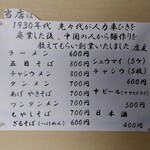 当店は
1930年代 先々代が人力車ひきを
廃業した後、中国の人から麺作りを
教えてもらい創業いたしました 店主
ラーメン 600円
五目そば 800円
チャシウメン 800円
タンメン 700円
あげやきそば 700円
ワンタンメン 700円
ワンタン 500円
もやしそば 700円
ざるそば(つけめん) 600円
シュウマイ(5ケ)
チャシウ(5枚)
600円
ビール
500円
700円
日本酒
400円